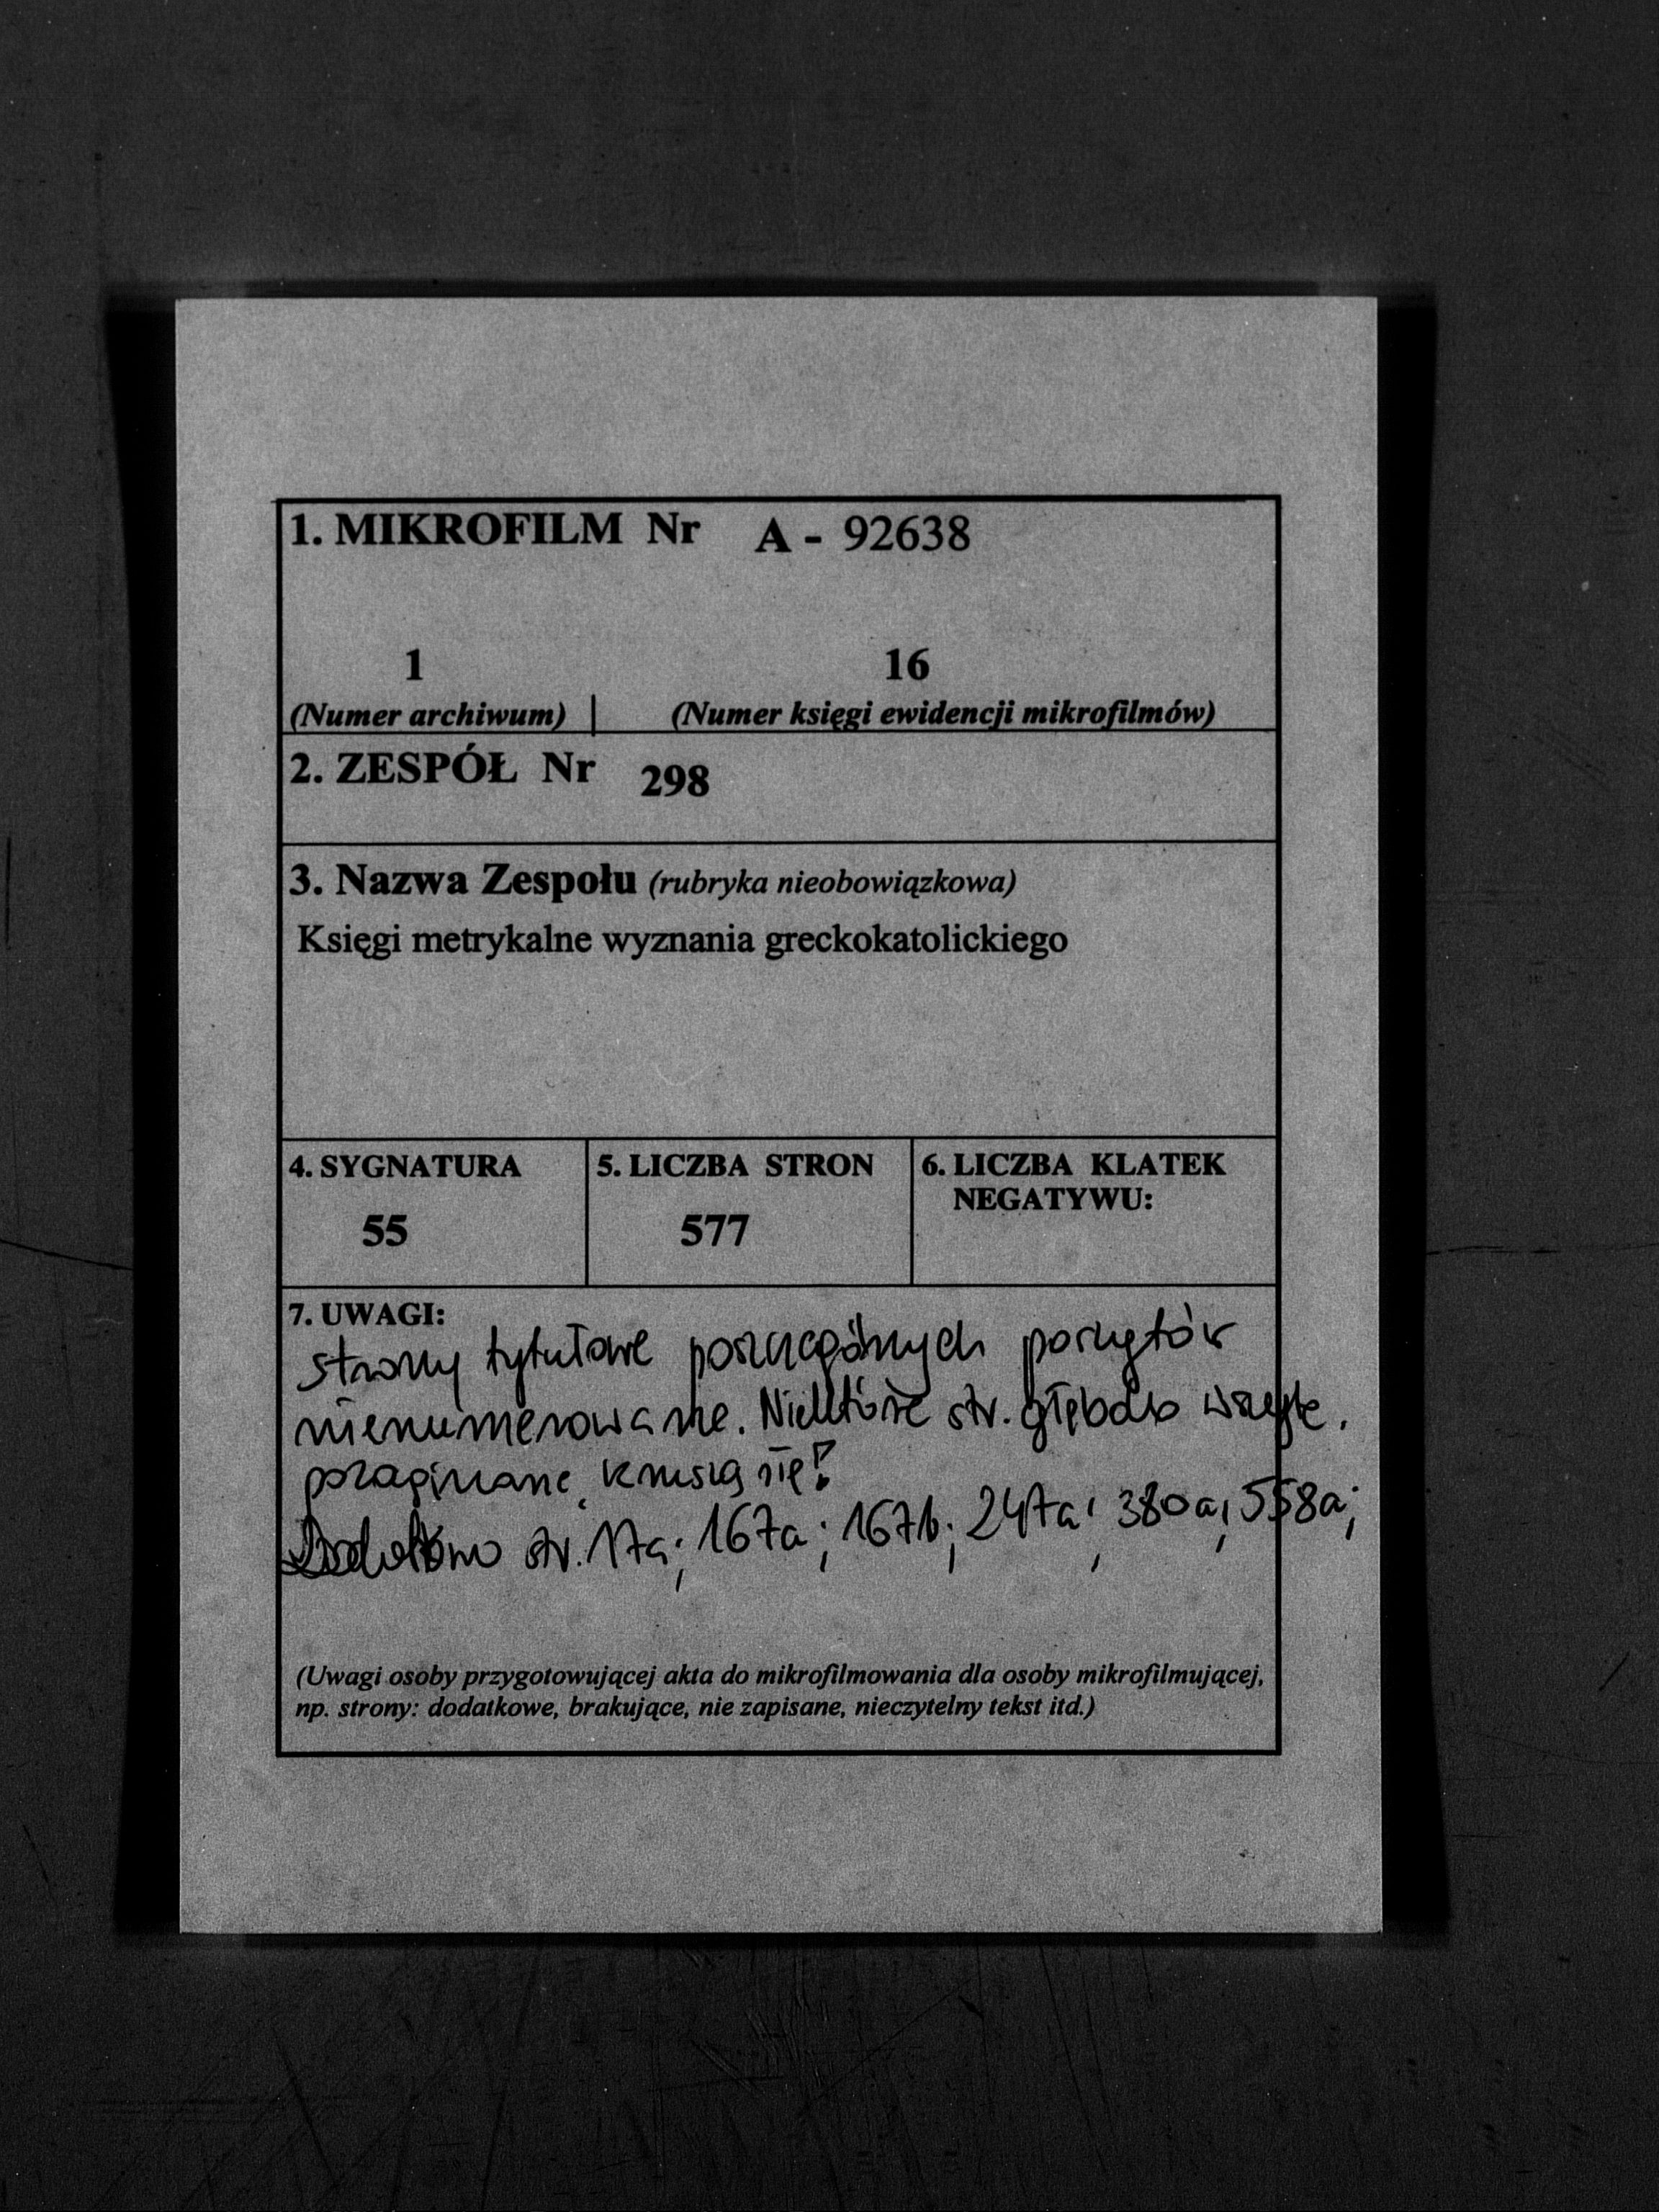 1. MIKROFILM Nr A - 92638
1 16
(Numer archiwum) | (Numer księgi ewidencji mikrofilmów)
2. ZESPÓŁ Nr 298
3. Nazwa Zespołu (rubryka nieobowiązkowa)
Księgi metrykalne wyznania greckokatolickiego
4. SYGNATURA 5. LICZBA STRON 6. LICZBA KLATEK
NEGATYWU:
55 577
7. UWAGI:
strony tytułowe poszczególnych poszytów
nienumerowane. Niektóre str. głęboko wszyte,
pozaginane, kruszą się!
Dodatkowo str. 17a; 167a; 167b; 247a; 380a; 558a;
(Uwagi osoby przygotowującej akta do mikrofilmowania dla osoby mikrofilmującej,
np. strony: dodatkowe, brakujące, nie zapisane, nieczytelny tekst itd.)